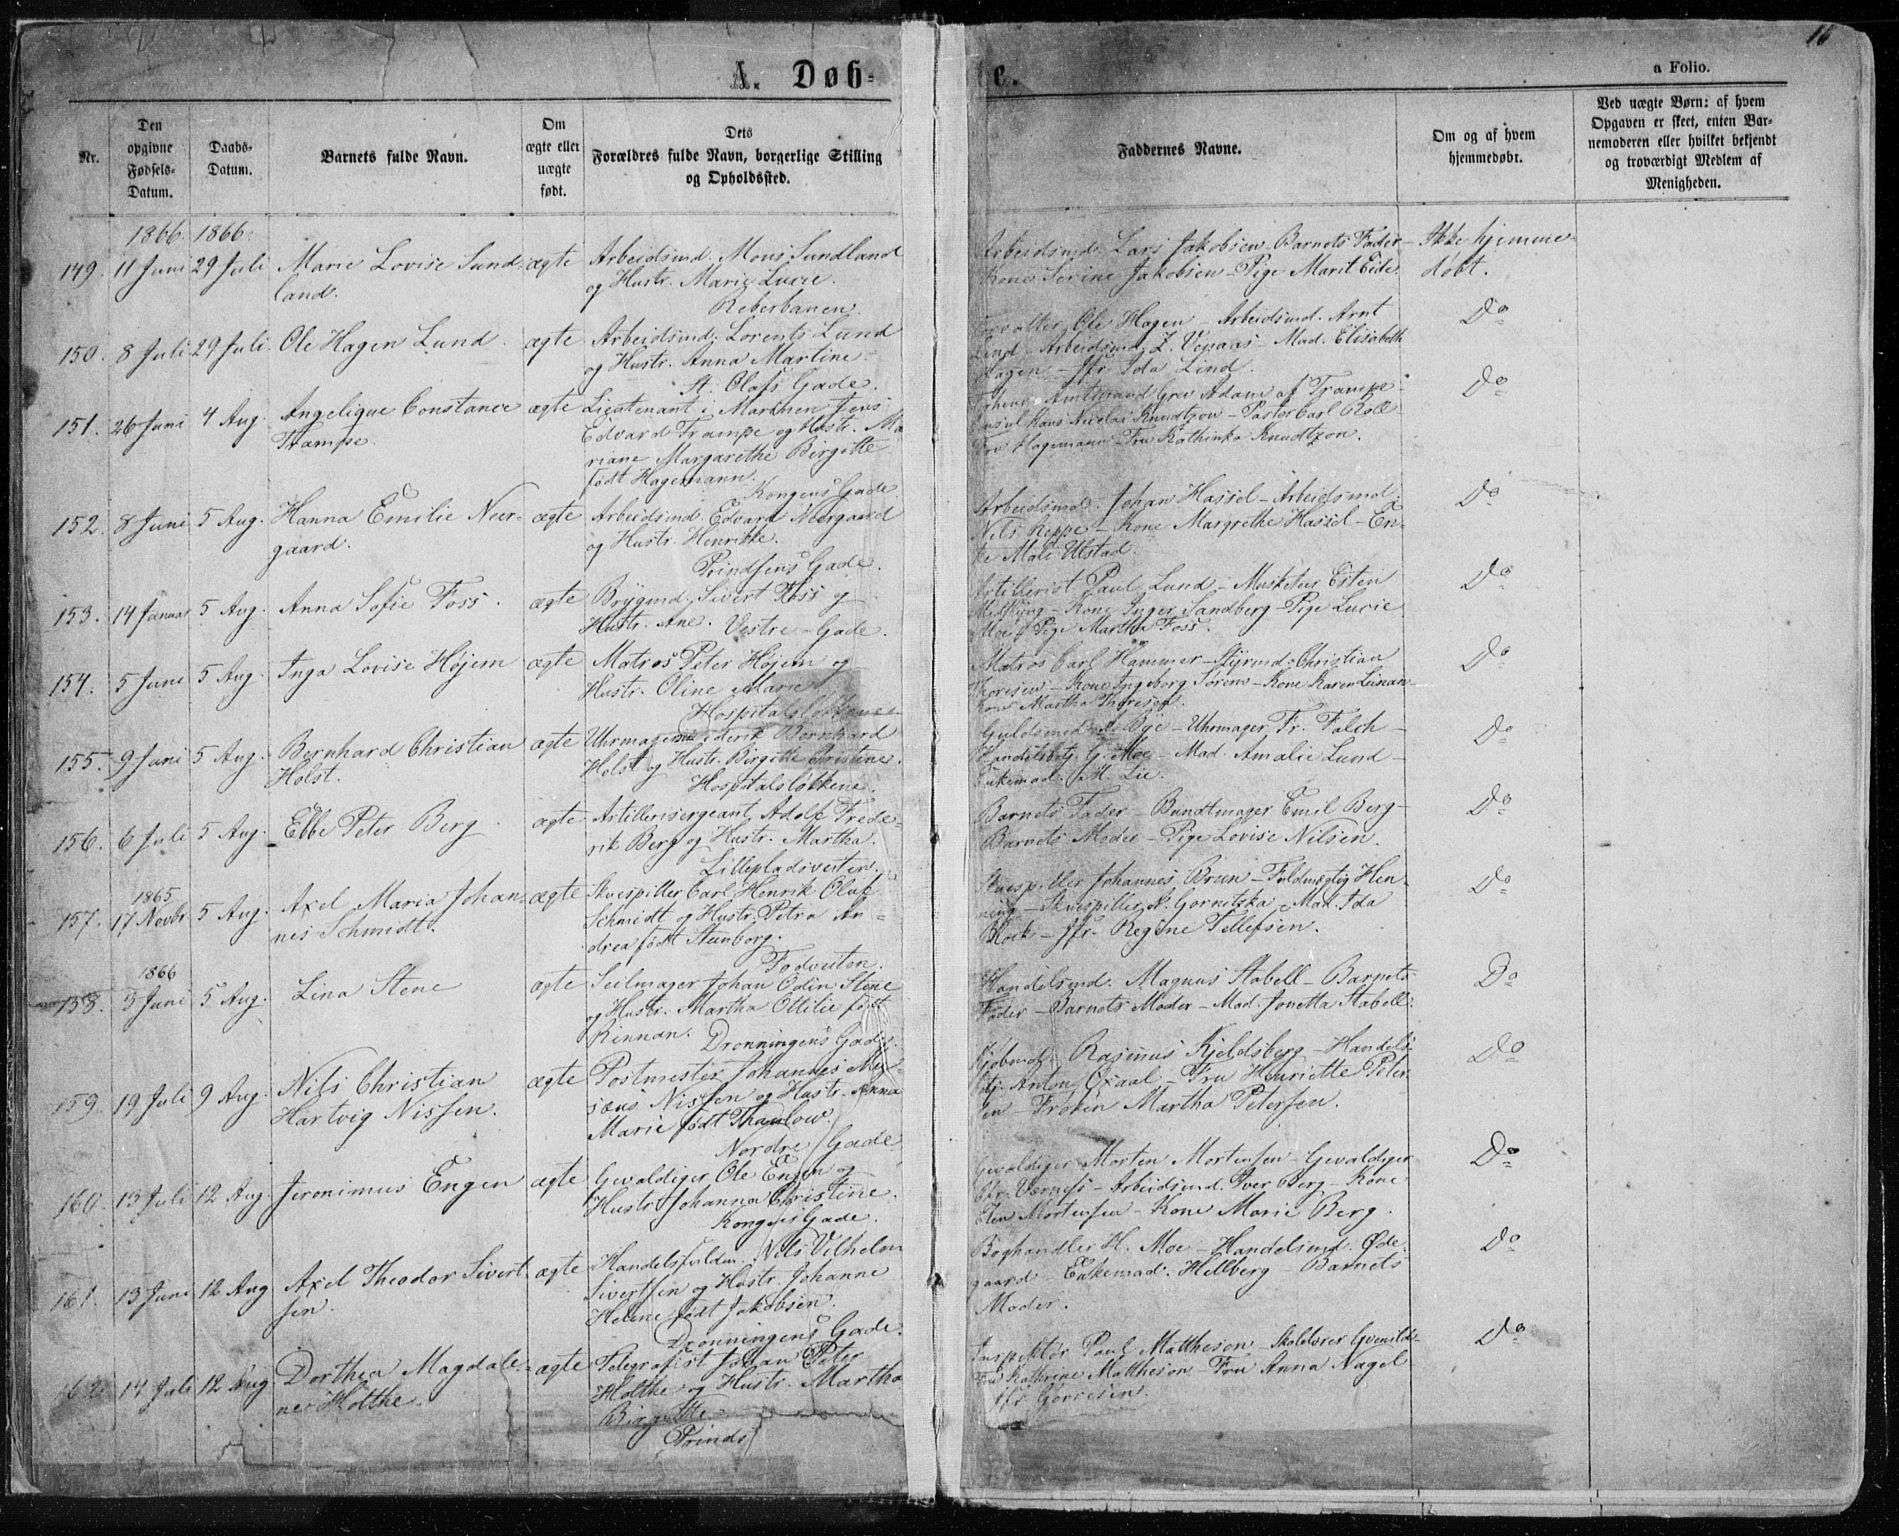 16
A. Døb-
e.
a Folio.
Nr.
Den opgivne Fødsels-Datum.
Daabs-Datum.
Barnets fulde Navn.
Om ægte eller uægte født.
Dets Forældres fulde Navn, borgerlige Stilling og Opholdssted.
Faddernes Navne.
Om og af hvem hjemmedøbt.
Ved uægte Børn: af hvem Opgaven er skeet, enten Barnemoderen eller hvilket bekjendt og troværdigt Medlem af Menigheden.
1866. 1866.
149. 11 Juni 29 Juli Marie Lovise Sund- ægte Arbeidsmd. Mons Sundland Arbeidsmd. Lars Jakobsen - Barnets Fader - Ikke hjemme-
land. og Hustr. Marie Lucie. Kone Serine Jakobsen - Pige Marit Eide døbt.
Reberbanen.
150. 8 Juli 29 Juli Ole Hagen Lund. ægte Arbeidsmd. Lorents Lund Ole Hagen - Arbeidsmd. Arnt Do
og Hustr. Anna Martine Lind - Arbeidsmd. Z. - Mad. Elisabeth
St. Olafs Gade. Hagen - Jfr. Ida Lind.
151. 26 Juni 4 Aug. Angelique Constance ægte Lieutenant i Marinen Jens Amtmand Grev Adam af Trampe - Do
Trampe. Edvard Trampe og Hustr. Ma- Hans Nicolai Knudtzon - Pastor Carl Roll
riane Margarethe Birgitte Fru Hagemann - Fru Kathinka Knudtzon.
født Hagemann.
Kongens Gade
152. 8 Juni 5 Aug. Hanna Emilie Neer- ægte Arbeidsmd. Edvard Neergaard Arbeidsmd. Johan Hassel - Arbeidsmd. Do
gaard. og Hustr. Henrikke. Nils Reppe - Kone Margrethe Hassel - En-
Prindsens Gade. ke Mali Ulstad.
153. 14 Januar 5 Aug. Anna Sofie Foss. ægte Brygmd. Sivert Foss og Artillerist Paul Lund - Musketeer Esten Do
Hustr. Ane. Vestre Gade. - Kone Inger Sandberg - Pige Lucie
Moe - Pige Martha Foss.
154. 5 Juni 5 Aug. Inga Lovise Højem ægte Matros Peter Højem og Matros Carl Hammer - Styrmd. Christian Do
Hustr. Oline Marie Thoresen - Kone Ingeborg Sørem - Kone Karen Leinan-
Hospitalsløkkene Kone Martha Thoresen.
155. 9 Juni 5 Aug. Bernhard Christian ægte Uhrmager Frederik Bernhard Guldsmed Bye - Uhrmager Fr. Falch - Do
Holst. Holst og Hustr. Birgitte Christine. Handelsbetj. G. Moe - Mad. Amalie Lund -
Hospitalsløkkene. Enkemad. M. Lie.
156. 6 Juli 5 Aug. Ebbe Peter Berg ægte Artillerisergeant Adolf Frede- Barnets Fader - Bundtmager Emil Berg - Do
rik Berg og Hustr. Martha. Barnets Moder - Pige Lovise Nilsen.
Lillepladsveiten.
1865
157. 17 Novbr 5 Aug. Axel Maria Johan- ægte Skuespiller Carl Henrik Olaf Skuespiller Johannes Brun - Fuldmægtig Hen- Do
nes Schmidt. Schmidt og Hustr. Petra An- ning - Skuespiller N. Gornitska - Mad. Ida
drea født Steenborg. Block - Jfr. Regine Tellefsen.
Fodveiten.
1866
158. 3 Juni 5 Aug. Lina Stene ægte Seilmager Johan Odin Stene Handelsmd. Magnus Stabell - Barnets Do
og Hustr. Martha Ottilie født Fader - Barnets Moder - Mad. Jonetta Stabell.
Rinnan. Dronningens Gade.
159. 19 Juli 9 Aug. Nils Christian ægte Postmester Johannes Mu- Kjøbmd. Rasmus Kjeldsberg - Handels- Do
Hartvig Nissen. sæus Nissen og Hustr. Anna betj. Anton Oxaal - Fru Henriette Peter-
Marie født Thaulow. sen - Frøken Martha Petersen.
Nordre Gade
160. 13 Juli 12 Aug. Jeronimus Engen ægte Gevaldiger Ole Engen og Gevaldiger Morten Mortensen - Gevaldiger Do
Hustr. Johanna Christine. Chr. Værnes - Arbeidsmd. Iver Berg - Kone
Kongens Gade. Elen Mortensen - Kone Marie Berg.
161. 13 Juni 12 Aug Axel Theodor Sivert- ægte Handelsfuldm. Nils Vilhelm Boghandler H. Moe - Handelsmd. Øde- Do
sen. Sivertsen og Hustr. Johanne gaard - Enkemad. Hellberg - Barnets
Helene født Jakobsen. Moder.
Dronningens Gade.
162. 14 Juli 12 Aug. Dorthea Magdale- ægte Telegrafist Johan Peter Inspektør Paul Matthesen - Skolelærer Do
ne Holthe. Holthe og Hustr. Martha Fru Kathrine Matthesen - Fru Anna Nagel
Birgitte Jfr. Gørrisen.
Prinds